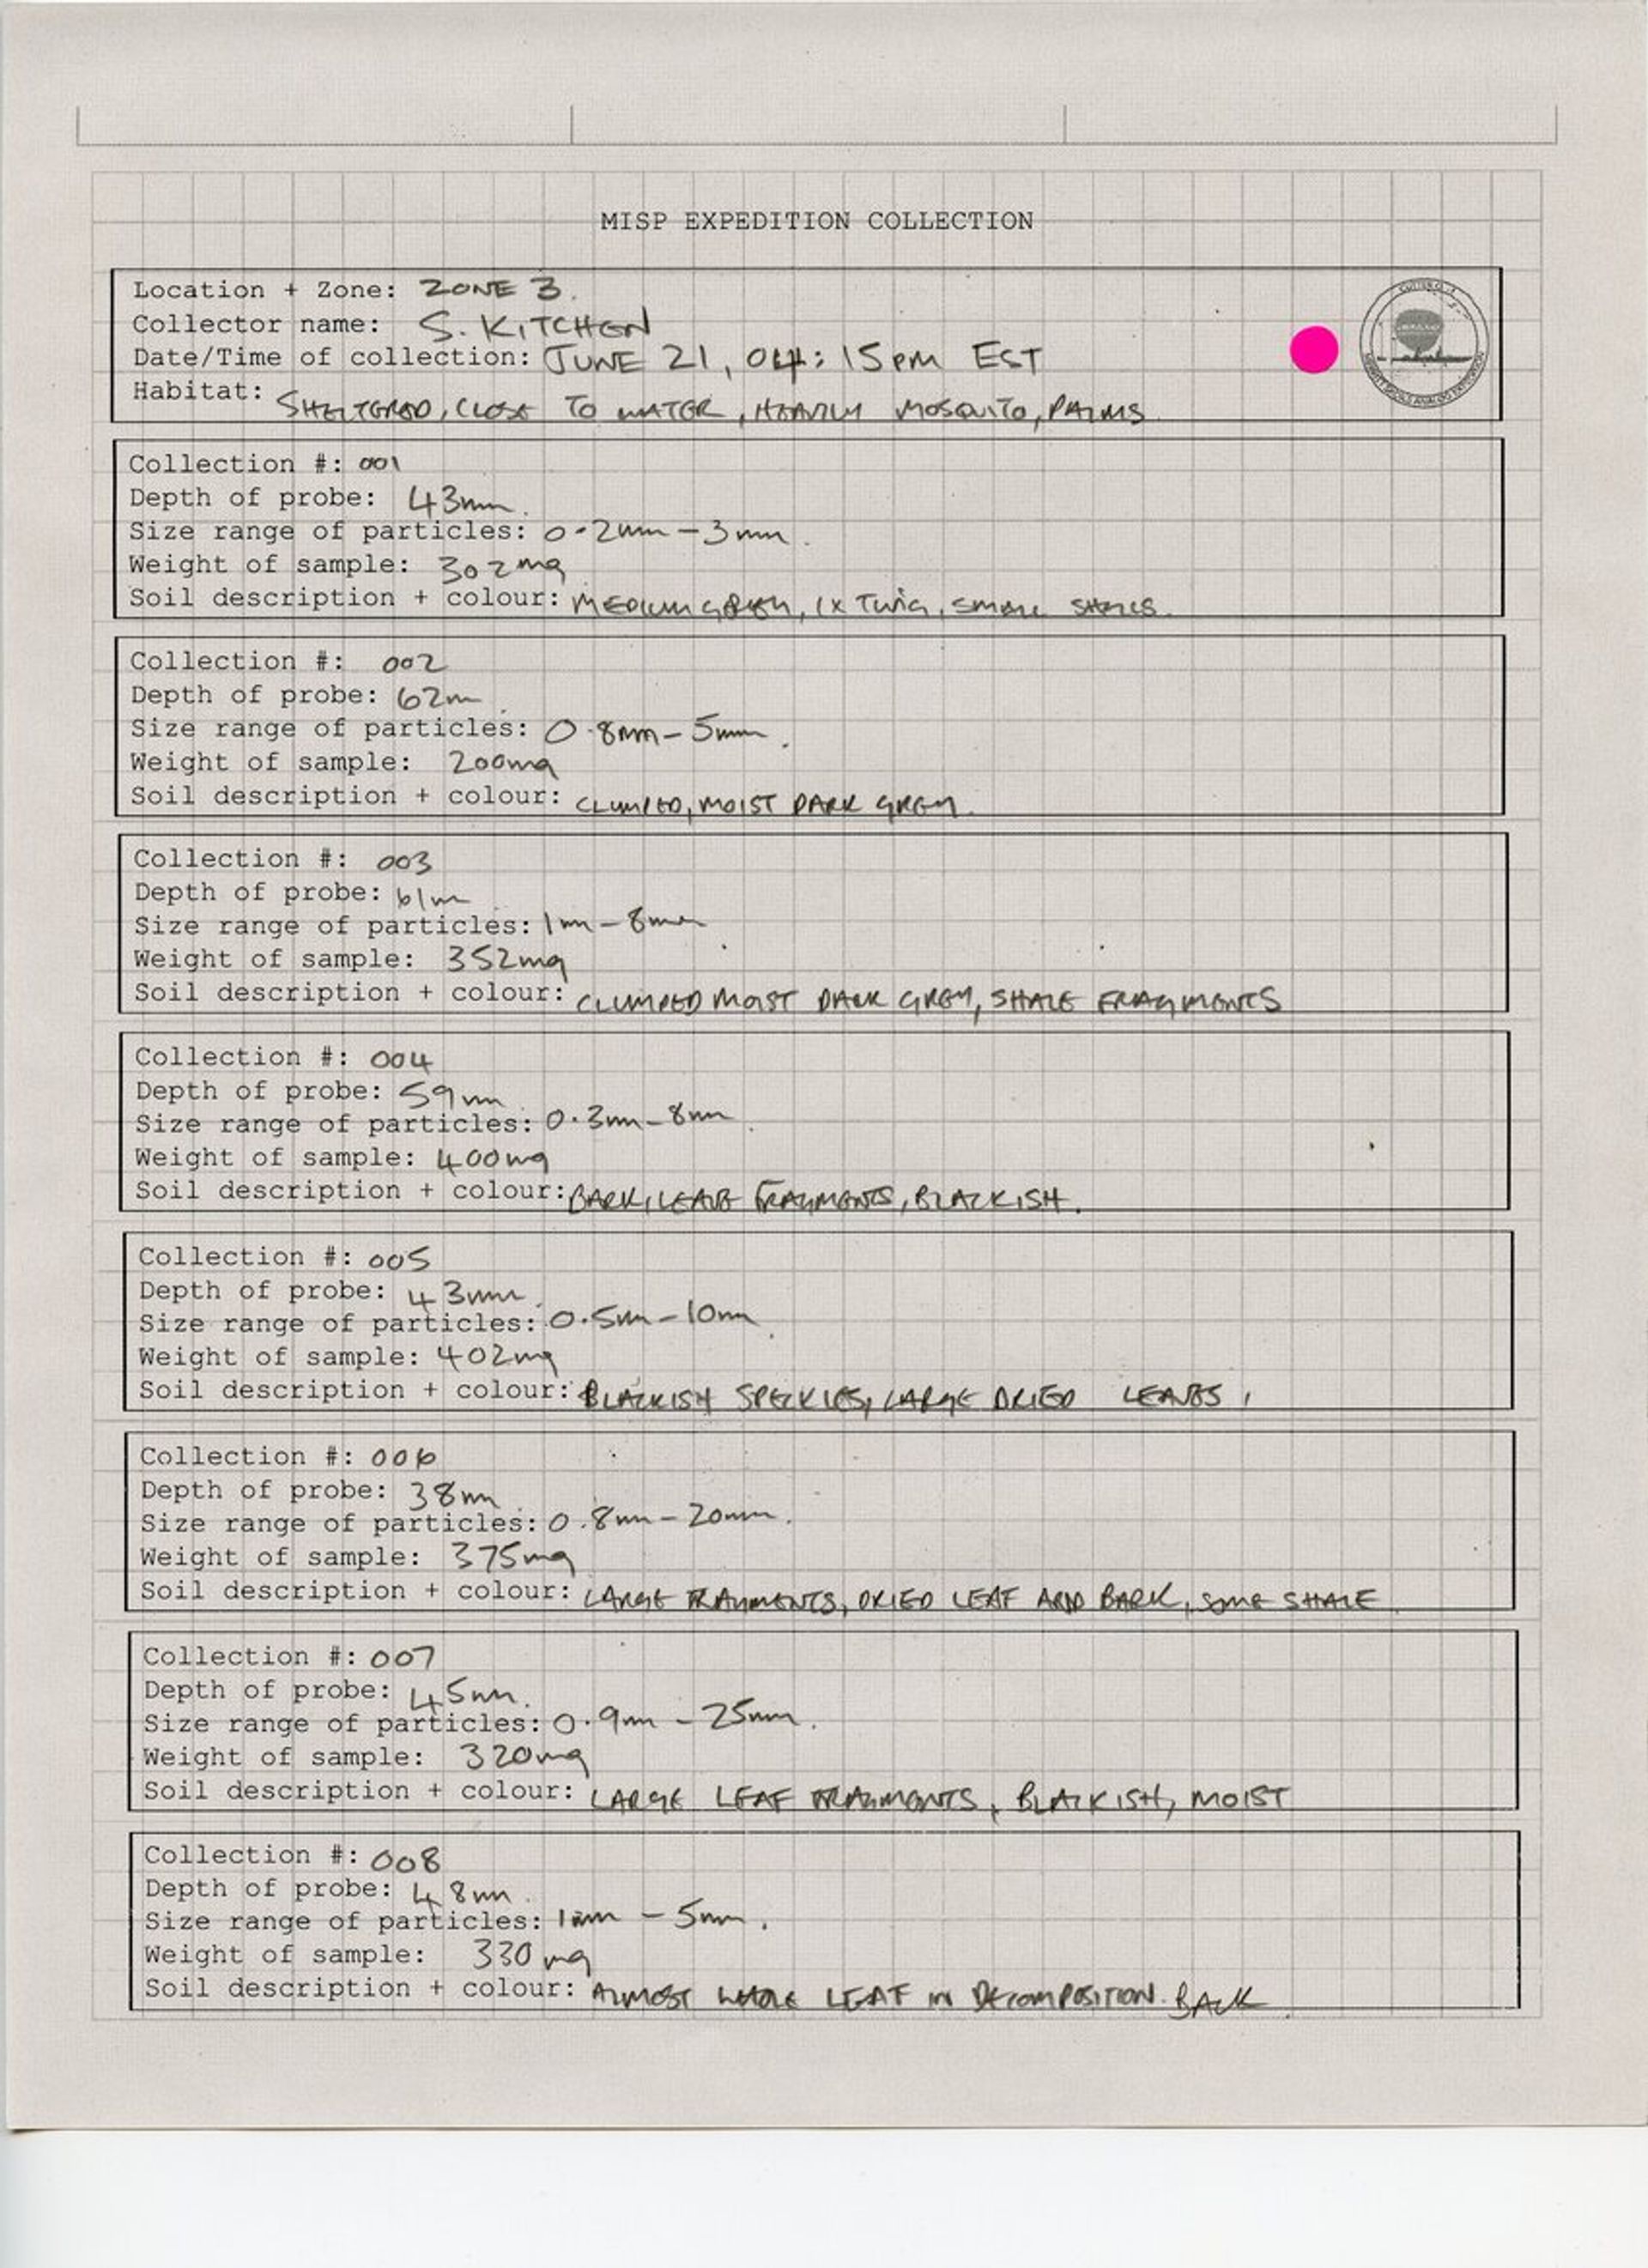 MISP EXPEDITION COLLECTION
Location + Zone: ZONE 3.
Collector name: S. KITCHEN
Date/Time of collection: JUNE 21, 04:15PM EST
Habitat: SHELTERED, CLOSE TO WATER, HEAVILY MOSQUITO, PALMS
Collection #: 001
Depth of probe: 43mm.
Size range of particles: 0.2mm - 3mm.
Weight of sample: 302mg
Soil description + colour: MEDIUM GREY, 1X TWIG, SMALL
Collection #: 002
Depth of probe: 62mm.
Size range of particles: 0.8mm - 5mm.
Weight of sample: 200mg
Soil description + colour: CLUMPED, MOIST DARK GREY.
Collection #: 003
Depth of probe: 61mm.
Size range of particles: 1mm - 8mm
Weight of sample: 352mg
Soil description + colour: CLUMPED MOIST DARK GREY, SHALE FRAGMENTS
Collection #: 004
Depth of probe: 59mm.
Size range of particles: 0.3mm - 8mm.
Weight of sample: 400mg
Soil description + colour: BARK, LEAVE FRAGMENTS, BLACKISH.
Collection #: 005
Depth of probe: 43mm.
Size range of particles: 0.5mm - 10mm.
Weight of sample: 402mg
Soil description + colour: BLACKISH SPECKLES, LARGE DRIED LEAVES,
Collection #: 006
Depth of probe: 38mm.
Size range of particles: 0.8mm - 20mm.
Weight of sample: 375mg
Soil description + colour: LARGE FRAGMENTS, DRIED LEAF AND BARK, SOME SHALE.
Collection #: 007
Depth of probe: 45mm.
Size range of particles: 0.9mm - 25mm.
Weight of sample: 320mg
Soil description + colour: LARGE LEAF FRAGMENTS, BLACKISH, MOIST
Collection #: 008
Depth of probe: 48mm.
Size range of particles: 1mm - 5mm.
Weight of sample: 330mg
Soil description + colour: ALMOST WHOLE LEAF IN DECOMPOSITION.